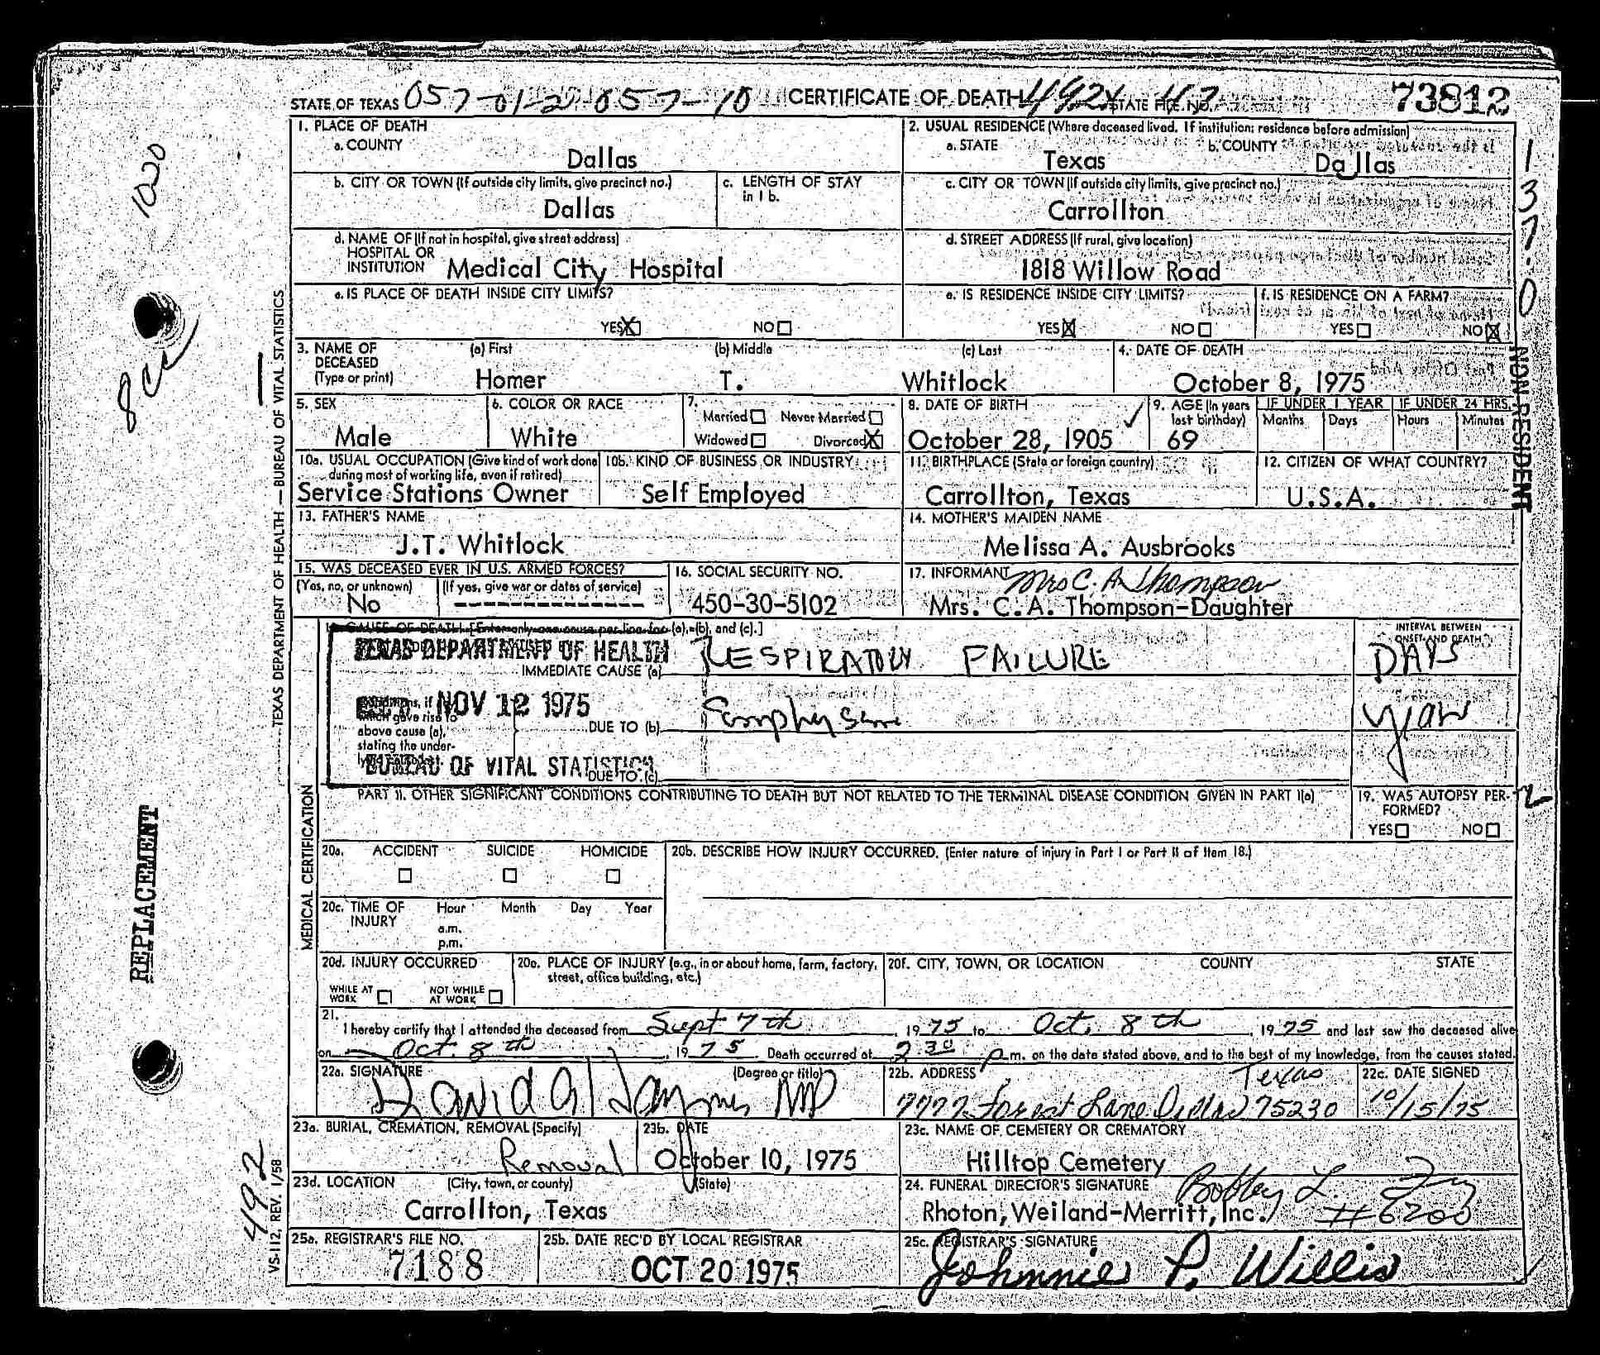 STATE OF TEXAS 057-01-2 057-10 CERTIFICATE OF DEATH 4924 STATE FILE NO. 47 73812
1. PLACE OF DEATH
a. COUNTY
Dallas
2. USUAL RESIDENCE (Where deceased lived. If institution: residence before admission)
a. STATE
Texas
b. COUNTY
Dallas
b. CITY OR TOWN (If outside city limits, give precinct no.)
Dallas
c. LENGTH OF STAY
in 1 b.
c. CITY OR TOWN (If outside city limits, give precinct no.)
Carrollton
d. NAME OF (If not in hospital, give street address)
HOSPITAL OR
INSTITUTION Medical City Hospital
d. STREET ADDRESS (If rural, give location)
1818 Willow Road
e. IS PLACE OF DEATH INSIDE CITY LIMITS?
YES X NO
e. IS RESIDENCE INSIDE CITY LIMITS?
YES X NO
f. IS RESIDENCE ON A FARM?
YES NO X
3. NAME OF
DECEASED
(Type or print)
(a) First
Homer
(b) Middle
T.
(c) Last
Whitlock
4. DATE OF DEATH
October 8, 1975
5. SEX
Male
6. COLOR OR RACE
White
7.
Married Never Married
Widowed Divorced X
8. DATE OF BIRTH
October 28, 1905
9. AGE (In years
last birthday)
69
IF UNDER 1 YEAR
Months Days
IF UNDER 24 HRS.
Hours Minutes
10a. USUAL OCCUPATION (Give kind of work done
during most of working life, even if retired)
Service Stations Owner
10b. KIND OF BUSINESS OR INDUSTRY
Self Employed
11. BIRTHPLACE (State or foreign country)
Carrollton, Texas
12. CITIZEN OF WHAT COUNTRY?
U.S.A.
13. FATHER'S NAME
J.T. Whitlock
14. MOTHER'S MAIDEN NAME
Melissa A. Ausbrooks
15. WAS DECEASED EVER IN U.S. ARMED FORCES?
(Yes, no, or unknown)
No
(If yes, give war or dates of service)
---------------
16. SOCIAL SECURITY NO.
450-30-5102
17. INFORMANT Mrs C. A Thompson
Mrs. C.A. Thompson-Daughter
CAUSE OF DEATH [Enter only one cause per line for (a), (b), and (c).]
INTERVAL BETWEEN
ONSET AND DEATH
TEXAS DEPARTMENT OF HEALTH
IMMEDIATE CAUSE (a) RESPIRATORY FAILURE DAYS
NOV 12 1975
Conditions, if
which gave rise to
above cause (a),
stating the under-
DUE TO (b) Emphysema years
BUREAU OF VITAL STATISTICS
DUE TO (c)
PART II. OTHER SIGNIFICANT CONDITIONS CONTRIBUTING TO DEATH BUT NOT RELATED TO THE TERMINAL DISEASE CONDITION GIVEN IN PART I(a)
19. WAS AUTOPSY PER-
FORMED?
YES NO
20a. ACCIDENT SUICIDE HOMICIDE
20b. DESCRIBE HOW INJURY OCCURRED. (Enter nature of injury in Part I or Part II of Item 18.)
20c. TIME OF
INJURY
Hour Month Day Year
a.m.
p.m.
20d. INJURY OCCURRED
WHILE AT
WORK
NOT WHILE
AT WORK
20e. PLACE OF INJURY (e.g., in or about home, farm, factory,
street, office building, etc.)
20f. CITY, TOWN, OR LOCATION COUNTY STATE
21.
I hereby certify that I attended the deceased from Sept 7th, 1975 to Oct. 8th, 1975 and last saw the deceased alive
on Oct. 8th, 1975. Death occurred at 2 30 p.m. on the date stated above, and to the best of my knowledge, from the causes stated.
22a. SIGNATURE (Degree or title)
David A Haymes MD
22b. ADDRESS Texas
7777 Forest Lane Dallas 75230
22c. DATE SIGNED
10/15/75
23a. BURIAL, CREMATION, REMOVAL (Specify)
Removal
23b. DATE
October 10, 1975
23c. NAME OF CEMETERY OR CREMATORY
Hilltop Cemetery
23d. LOCATION (City, town, or county) (State)
Carrollton, Texas
24. FUNERAL DIRECTOR'S SIGNATURE Bobby L.
Rhoton, Weiland-Merritt, Inc. #6200
25a. REGISTRAR'S FILE NO.
7188
25b. DATE REC'D BY LOCAL REGISTRAR
OCT 20 1975
25c. REGISTRAR'S SIGNATURE
Johnnie P. Willis
TEXAS DEPARTMENT OF HEALTH — BUREAU OF VITAL STATISTICS
MEDICAL CERTIFICATION
VS-112, REV. 1/58
492
REPLACEMENT
1020
137-0
NON RESIDENT
2